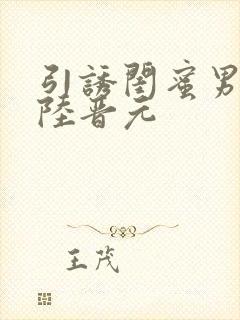 引誘閨蜜男
陸晋元
王茂